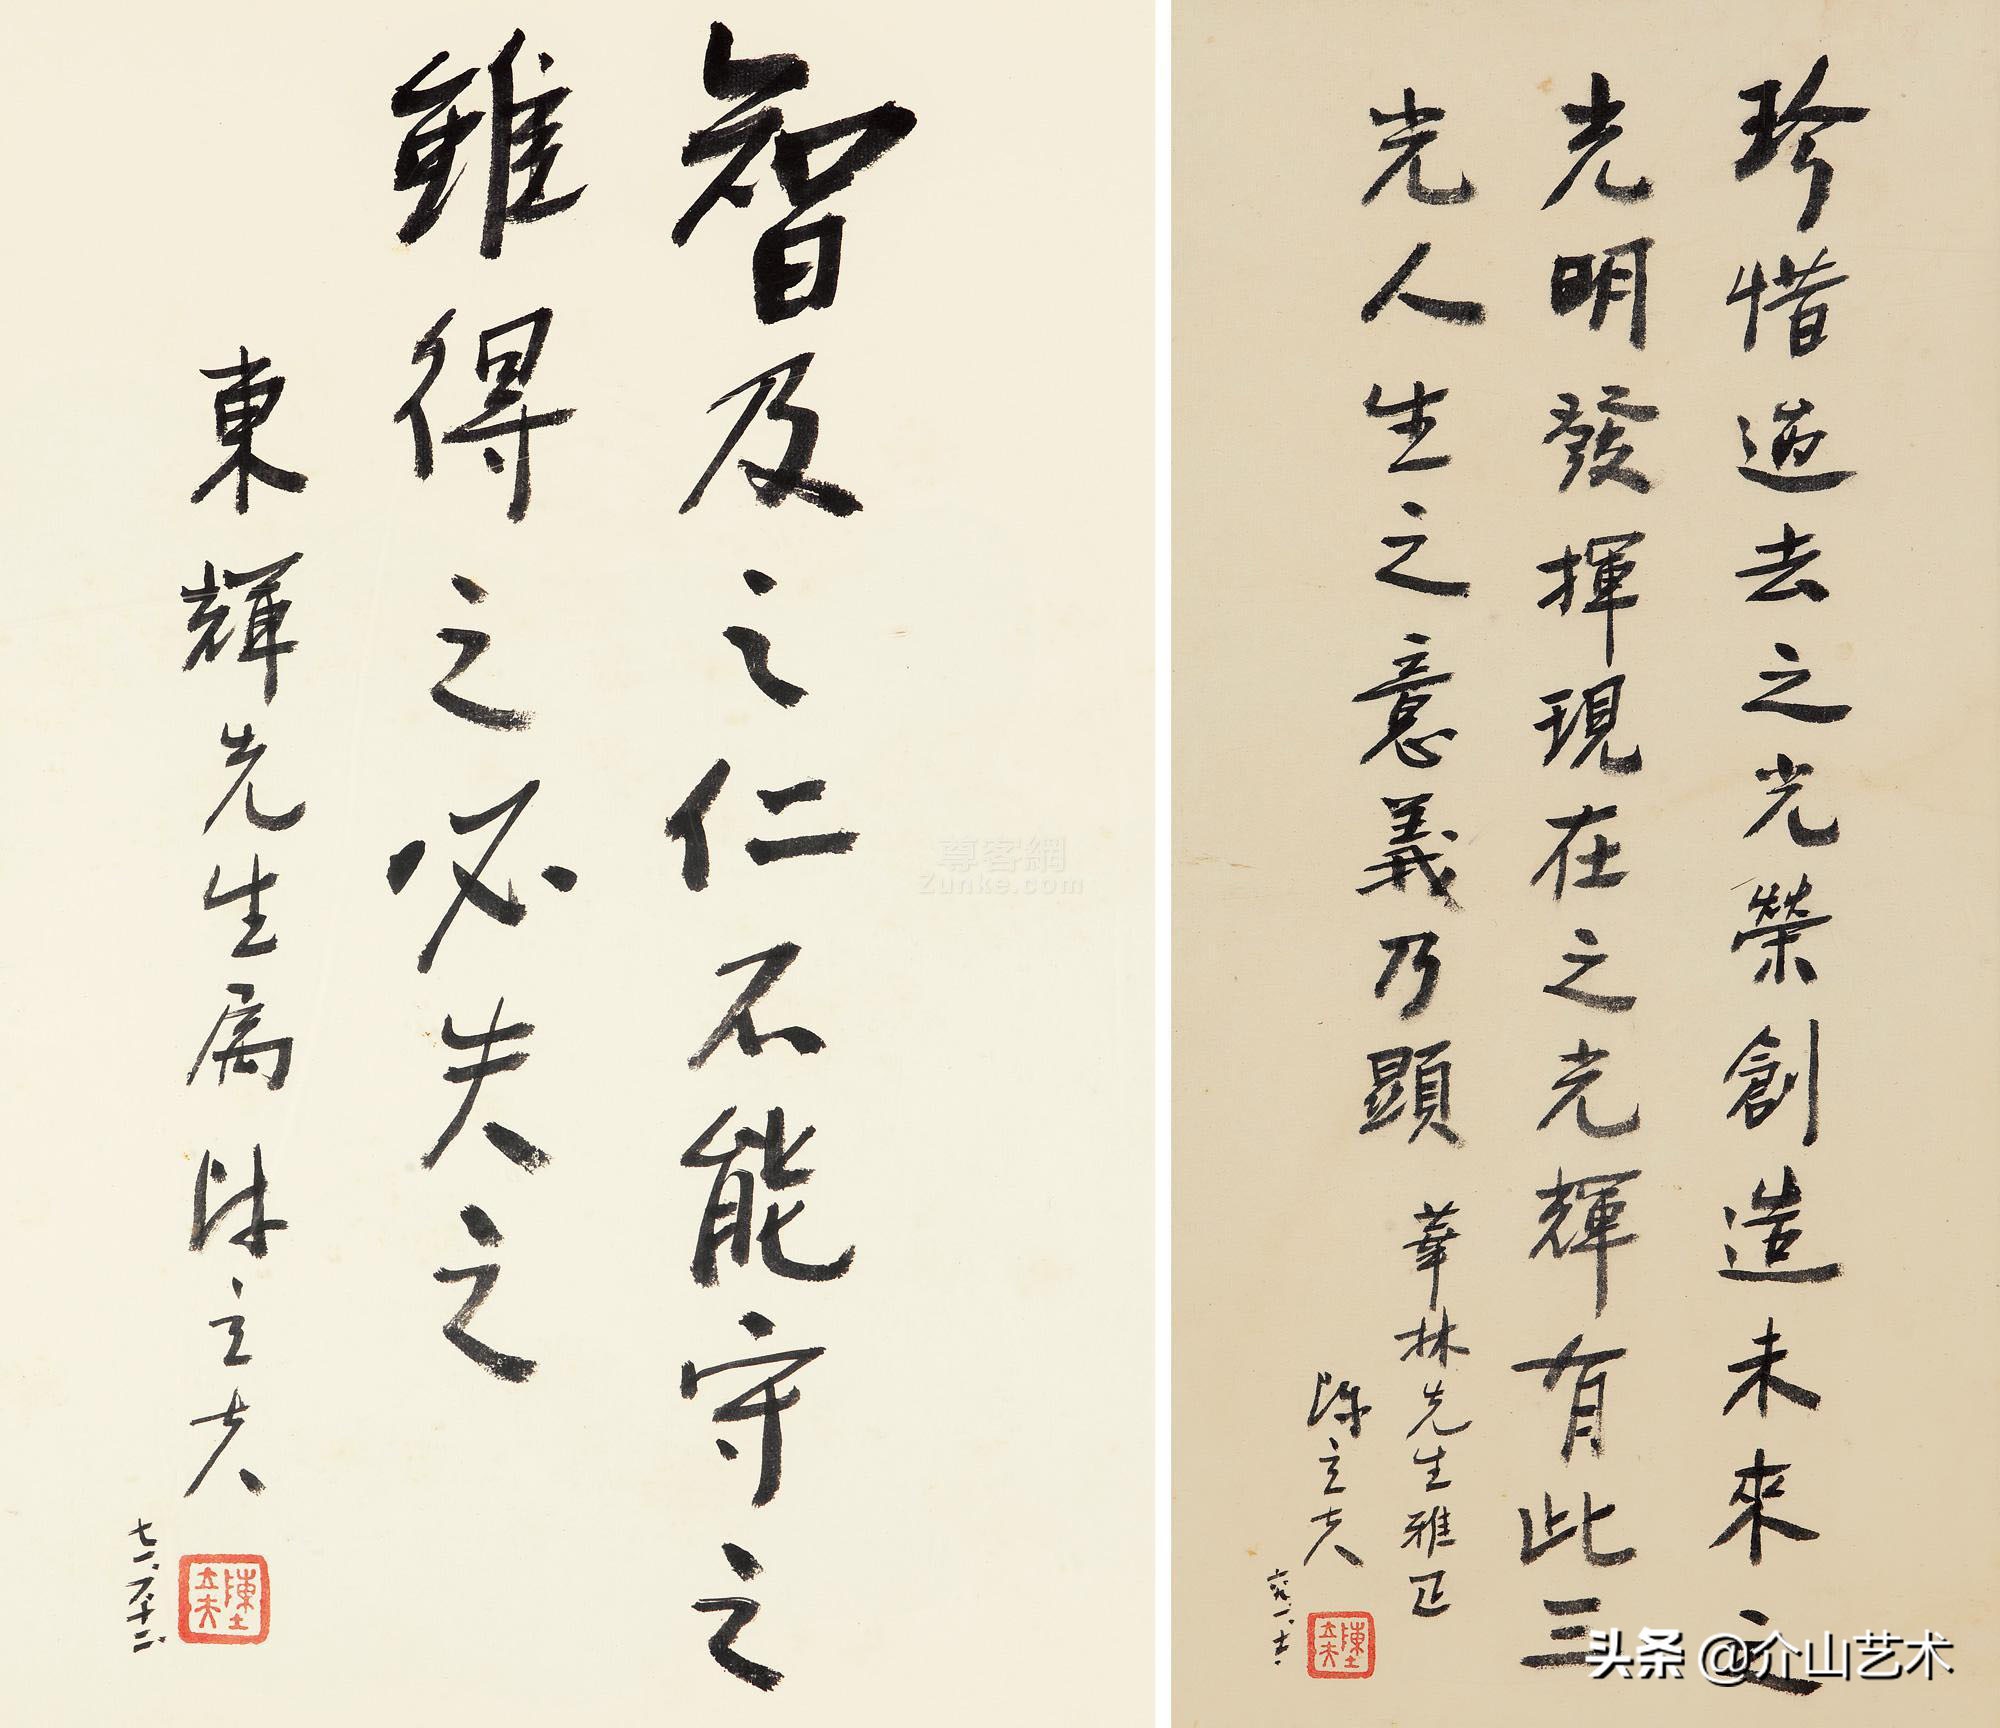 智及之仁不能守之
雖得之必失之
東輝先生属 陳立夫
七一、八、十二、
陳立夫
尊客網
Zunke.com
珍惜過去之光榮創造未來之
光明發揮現在之光輝有此三
光人生之意義乃顯
華林先生雅正
陳立夫
陳立夫
头条 @介山艺术